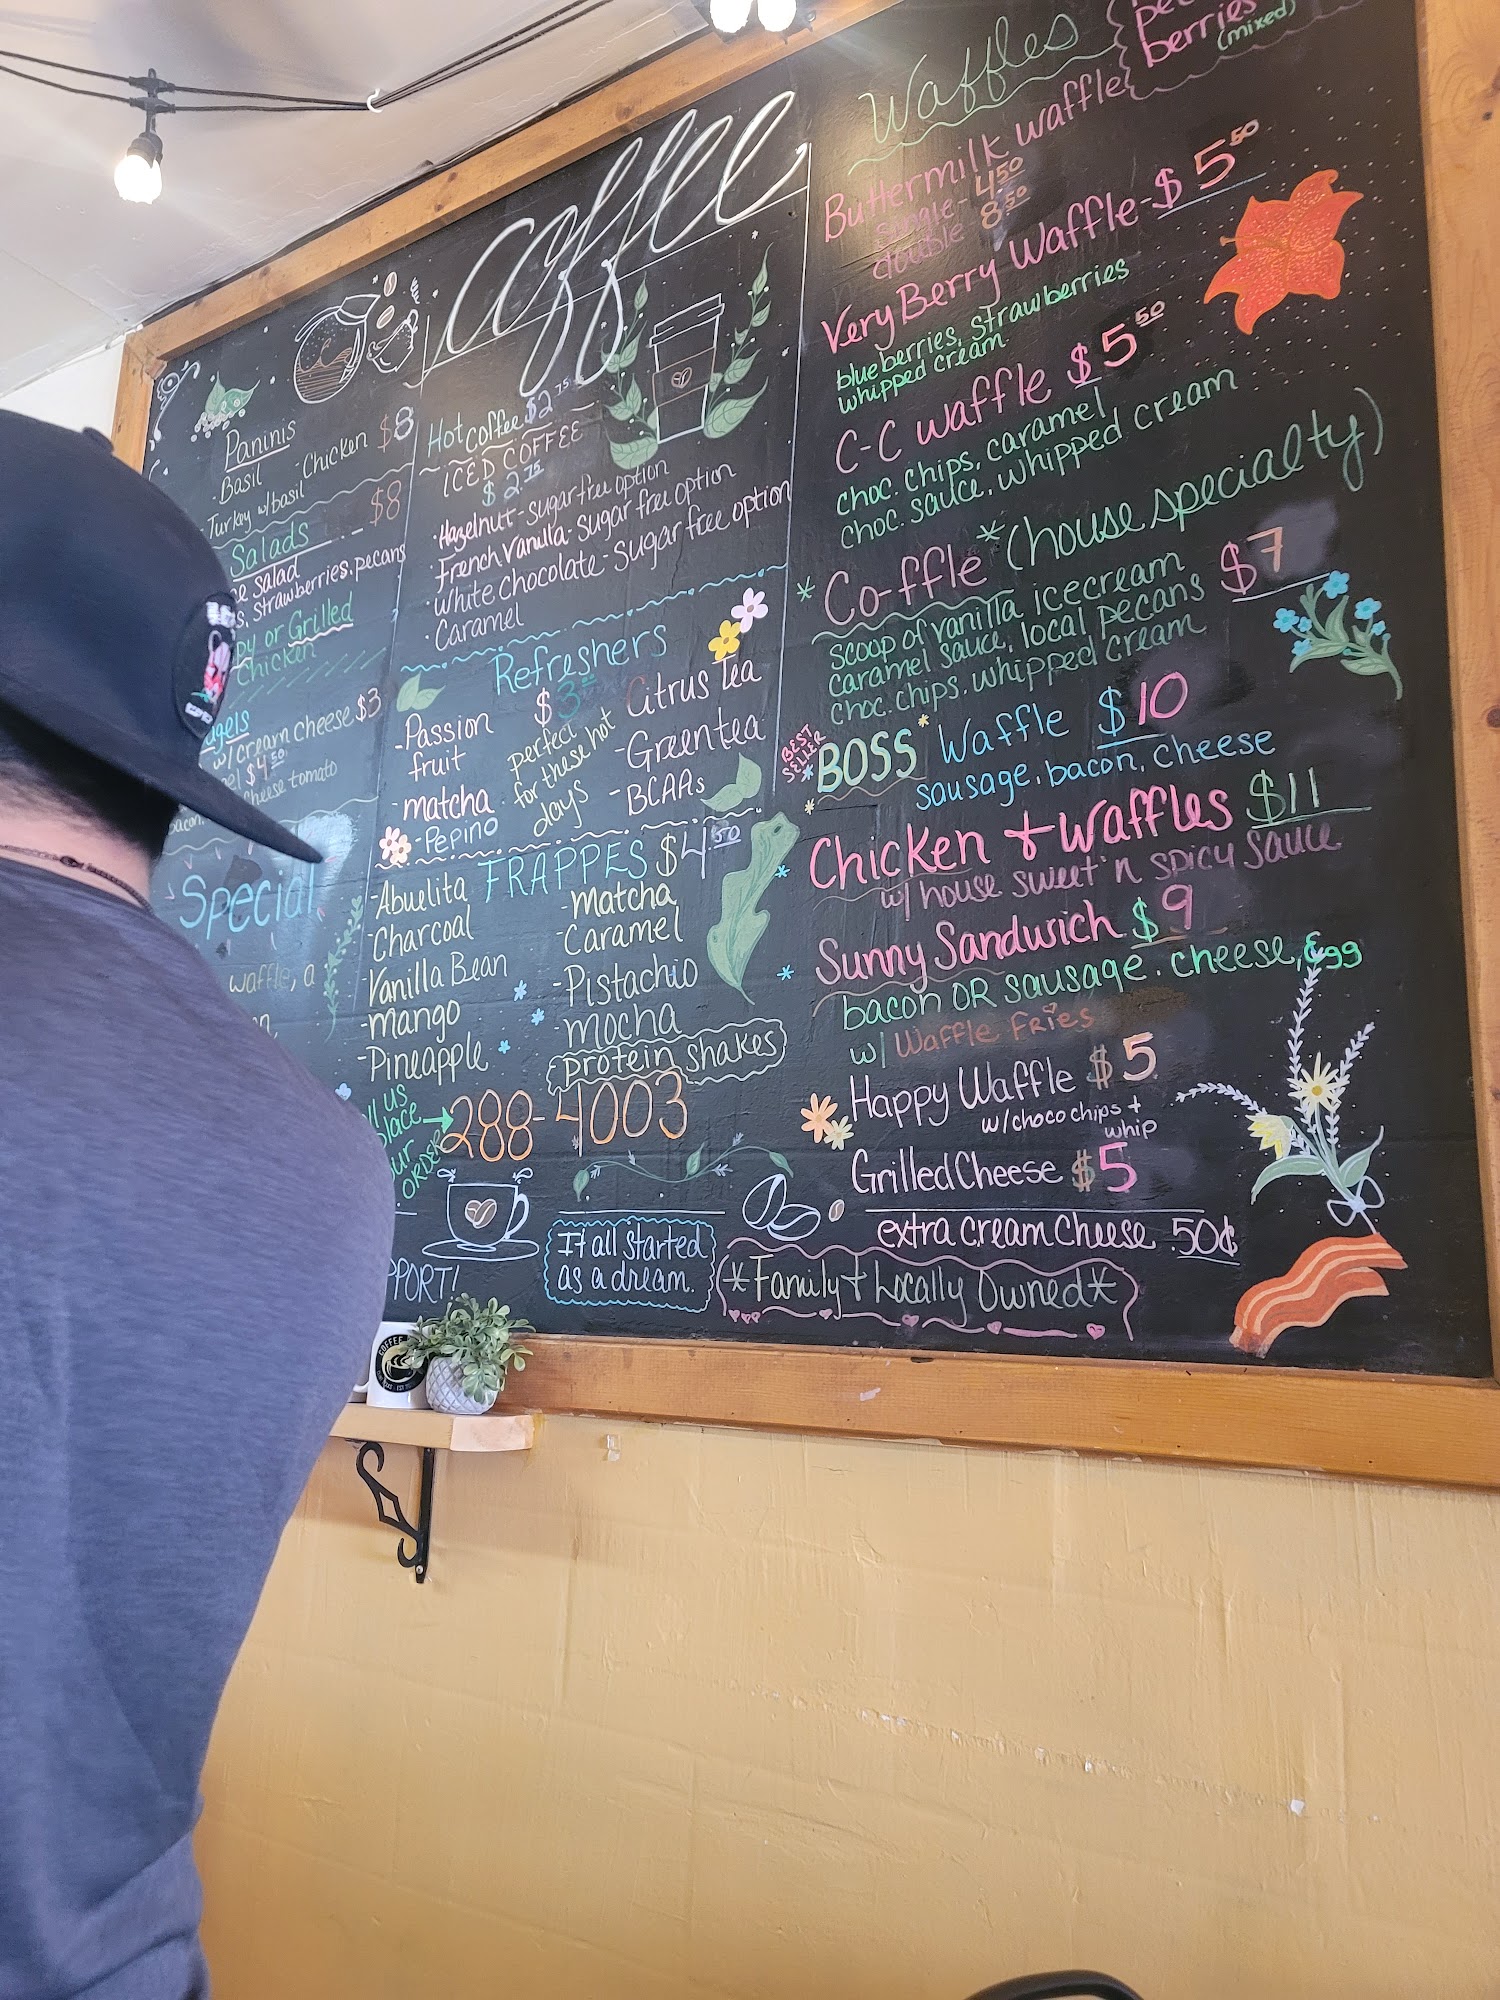 Coffee
Paninis
·Basil -Chicken $8
·Turkey w/basil
Salads $8
salad
strawberries. pecans
or Grilled
chicken
w/cream cheese $3
$4.50
cheese tomato
bacon.
Special
waffle, a
Hot coffee $2.75
ICED COFFEE
$2.75
·Hazelnut - sugar free option
·French Vanilla - Sugar free option
·White Chocolate - Sugar free option
·Caramel
Refreshers
$3
perfect
for these hot
days
-Passion
fruit
-matcha
-Pepino
Citrus Tea
-Green tea
-BCAAs
FRAPPES $4.50
-Abuelita
-Charcoal
-Vanilla Bean
-Mango
-Pineapple
-Matcha
-Caramel
-Pistachio
-mocha
protein shakes
us
place
our
ORDER
288-4003
PPORT!
It all started
as a dream.
Waffles
Buttermilk waffle
single - 4.50
double 8.50
berries
(mixed)
Very Berry Waffle - $5.50
blueberries, strawberries
whipped cream
C-C waffle $5.50
choc. chips, caramel
choc. sauce, whipped cream
*Co-ffle *(house specialty)
$7
scoop of vanilla icecream
caramel sauce, local pecans
choc. chips. whipped cream
BEST
SELLER
*BOSS* Waffle $10
sausage, bacon, cheese
Chicken + Waffles $11
w/ house sweet 'n spicy sauce
Sunny Sandwich $9
bacon OR sausage. cheese, egg
w/ Waffle Fries
Happy Waffle $5
w/choco chips +
whip
Grilled Cheese $5
extra cream cheese .50¢
*Family + Locally Owned*
COFFEE